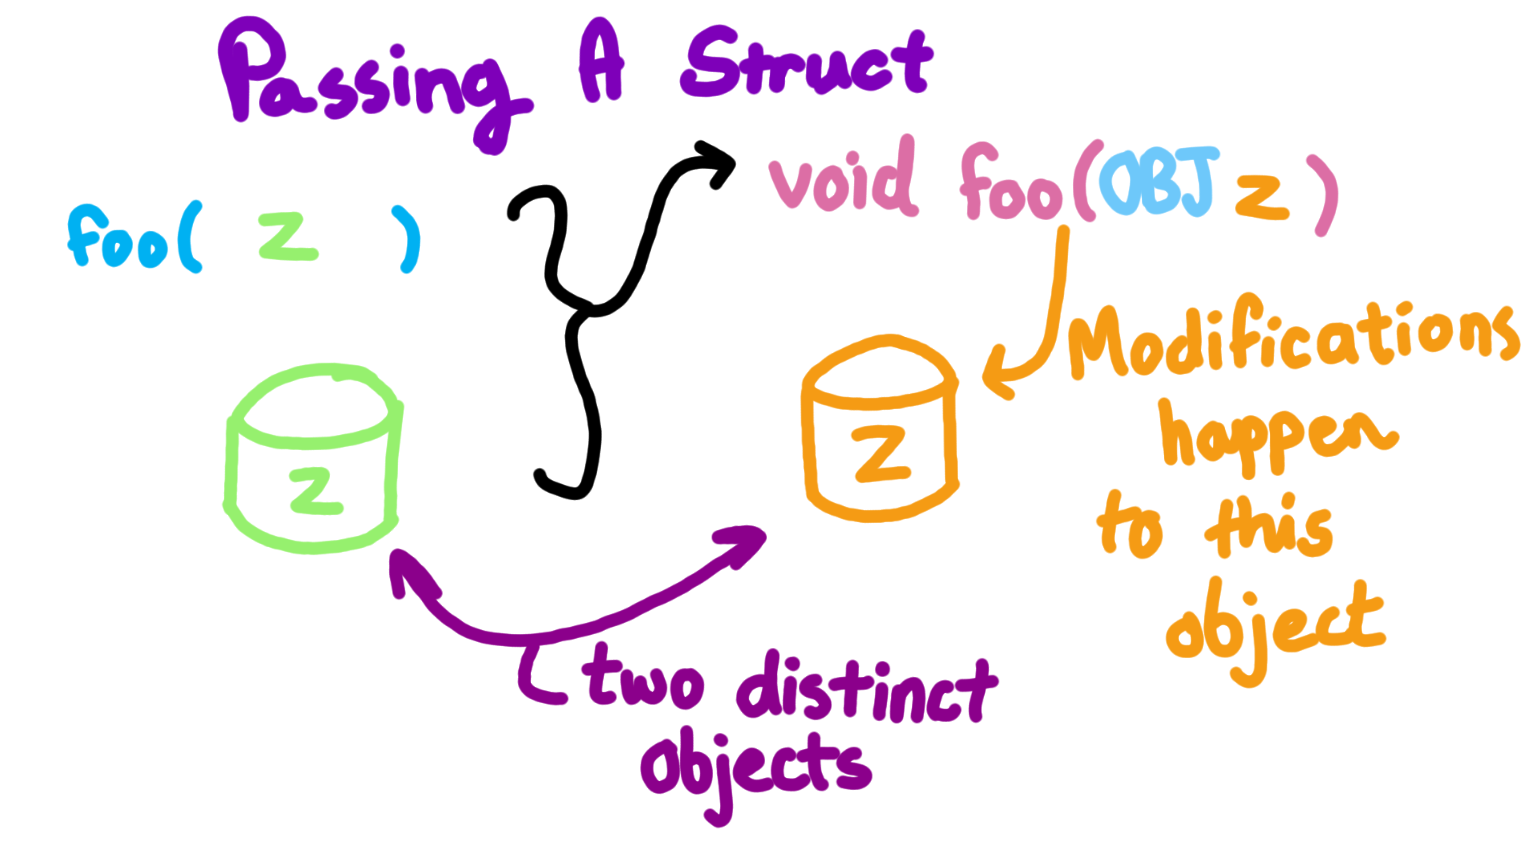 Passing A Struct
foo( z )
void foo(OBJ z)
z
z
Modifications
happen
to this
object
two distinct
objects